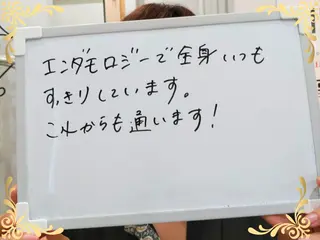 エンダモロジーで全身いつも
すっきりしています。
これからも通います！